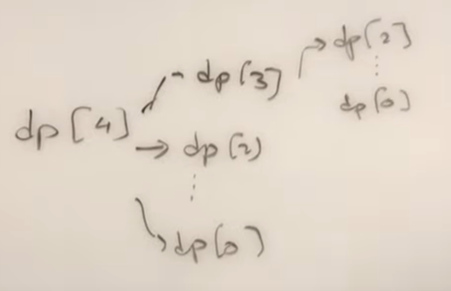 dp[2]
dp[3]
dp[0]
dp[4]
dp[2]
dp[0]